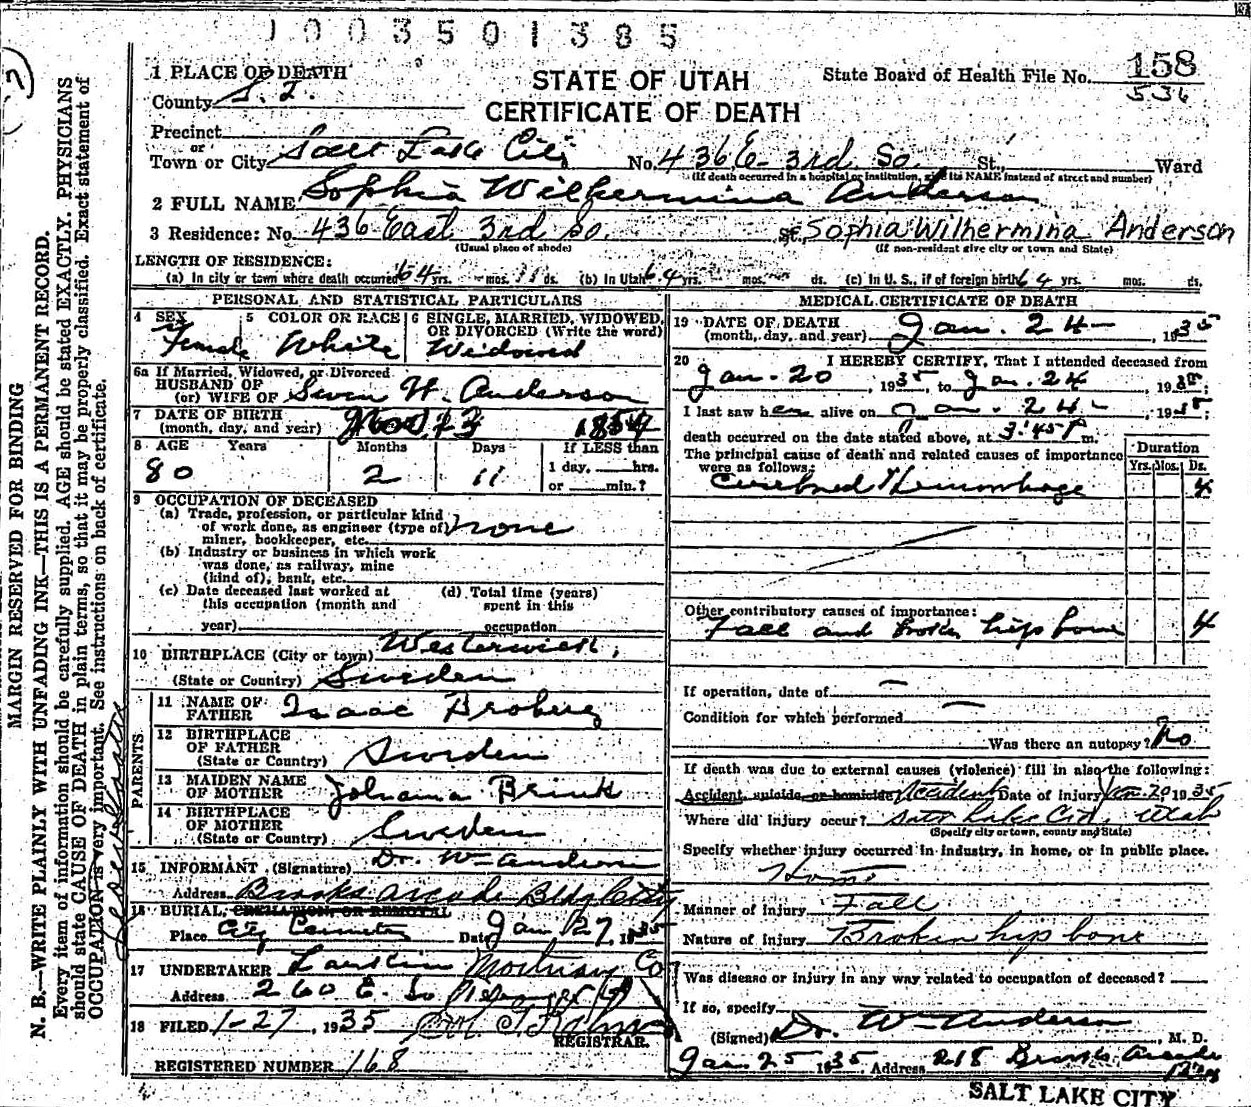 1003501385
1 PLACE OF DEATH
STATE OF UTAH
CERTIFICATE OF DEATH
State Board of Health File No. 158
536
County S. L.
Precinct
or
Town or City Salt Lake City No. 436 E- 3rd So. St., Ward
(If death occurred in a hospital or institution, give its NAME instead of street and number)
2 FULL NAME Sophia Wilhermina Anderson
3 Residence: No. 436 East 3rd So. St., Sophia Wilhermina Anderson
(Usual place of abode) (If non-resident give city or town and State)
LENGTH OF RESIDENCE:
(a) In city or town where death occurred 64 yrs. mos. 11 ds. (b) In Utah 64 yrs. mos. ds. (c) In U. S., if of foreign birth 64 yrs. mos. ds.
PERSONAL AND STATISTICAL PARTICULARS
4 SEX Female
5 COLOR OR RACE White
6 SINGLE, MARRIED, WIDOWED, OR DIVORCED (Write the word)
Widowed
6a If Married, Widowed, or Divorced
HUSBAND OF
(or) WIFE OF Swen H. Anderson
7 DATE OF BIRTH
(month, day, and year) Nov. 13 1854
8 AGE Years Months Days If LESS than
80 2 11 1 day, hrs.
or min.?
9 OCCUPATION OF DECEASED
(a) Trade, profession, or particular kind
of work done, as engineer (type of) none
miner, bookkeeper, etc.
(b) Industry or business in which work
was done, as railway, mine
(kind of), bank, etc.
(c) Date deceased last worked at (d) Total time (years)
this occupation (month and spent in this
year) occupation
10 BIRTHPLACE (City or town) Westerwick,
(State or Country) Sweden
PARENTS
11 NAME OF
FATHER Isaac Broberg
12 BIRTHPLACE
OF FATHER
(State or Country) Sweden
13 MAIDEN NAME
OF MOTHER Johanna Brink
14 BIRTHPLACE
OF MOTHER
(State or Country) Sweden
15 INFORMANT (Signature) Dr. Wm Anderson
Address Brooks Arcade Bldg City
16 BURIAL, CREMATION, OR REMOVAL
Place City Cemetery Date Jan 27, 1935
17 UNDERTAKER Larkin Mortuary Co
Address 260 E. So
18 FILED 1-27, 1935
REGISTRAR.
REGISTERED NUMBER 168
MEDICAL CERTIFICATE OF DEATH
19 DATE OF DEATH
(month, day, and year) Jan. 24- , 1935
20 I HEREBY CERTIFY, That I attended deceased from
Jan. 20 , 1935, to Jan. 24 , 1935;
I last saw her alive on Jan. 24- , 1935;
death occurred on the date stated above, at 3:45 P m.
The principal cause of death and related causes of importance
were as follows:
Duration
Yrs. Mos. Ds.
Cerebral Hemorrhage 4
Other contributory causes of importance:
Fall and broken hip bone 4
If operation, date of —
Condition for which performed —
Was there an autopsy? No
If death was due to external causes (violence) fill in also the following:
Accident, suicide, or homicide Accident Date of injury Jan. 20 1935
Where did injury occur? Salt Lake City, Utah
(Specify city or town, county and State)
Specify whether injury occurred in industry, in home, or in public place.
Home
Manner of injury Fall
Nature of injury Broken hip bone
Was disease or injury in any way related to occupation of deceased?
If so, specify
(Signed) Dr. Wm Anderson , M. D.
Jan. 25 1935 Address 218 Brooks Arcade
Bldg
SALT LAKE CITY
MARGIN RESERVED FOR BINDING
N. B.—WRITE PLAINLY WITH UNFADING INK—THIS IS A PERMANENT RECORD.
Every item of information should be carefully supplied. AGE should be stated EXACTLY. PHYSICIANS
should state CAUSE OF DEATH in plain terms, so that it may be properly classified. Exact statement of
OCCUPATION is very important. See instructions on back of certificate.